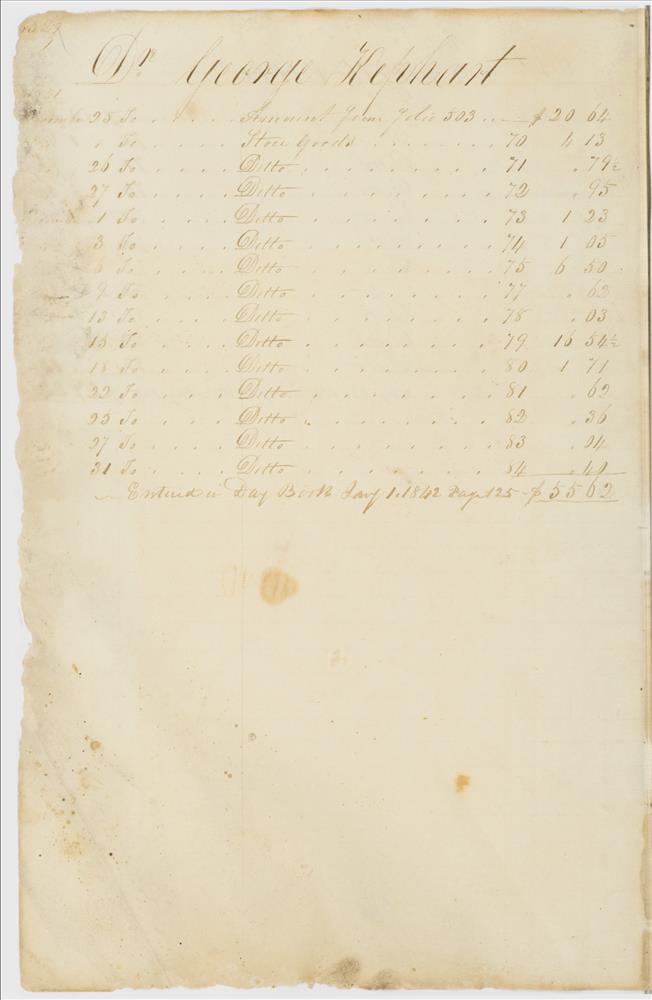 Dr George Kephart
25 To . . . . . Amount from folio 503 . . — $ 20 64
" To . . . . . Store Goods . . . . . . . 70 4 13
26 To . . . . Ditto . . . . . . . . 71 . 79½
27 To . . . . Ditto . . . . . . . . 72 . 95
1 To . . . . Ditto . . . . . . . . 73 1 23
3 To . . . . Ditto . . . . . . . . 74 1 05
6 To . . . . Ditto . . . . . . . . 75 6 50
9 To . . . . Ditto . . . . . . . . 77 . 62
13 To . . . . Ditto . . . . . . . . 78 . 03
15 To . . . . Ditto . . . . . . . . 79 16 54½
18 To . . . . Ditto . . . . . . . . 80 1 71
22 To . . . . Ditto . . . . . . . . 81 . 62
25 To . . . . Ditto . . . . . . . . 82 . 36
27 To . . . . Ditto . . . . . . . . 83 . 04
31 To . . . . Ditto . . . . . . . . 84 . 40
Entered in Day Book Jany 1. 1842 Page 125 - $ 55 62